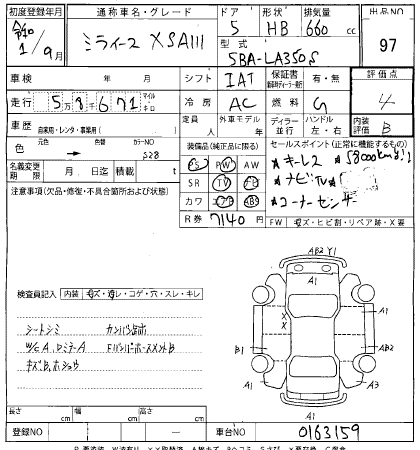 初度登録年月 通称車名・グレード ドア 形状 排気量 出品NO
1/9月 ミライース X SAIII 5 HB 660 cc 97
型式 5BA-LA350S
車検 年 月 シフト IAT 保証書 有・無 評価点
走行 5万8千671 マイル キロ 冷房 AC 燃料 G 4
車歴 自家用・レンタ・事業用( ) 定員 人 外車モデル 年 ディーラー 並行 ハンドル 左・右 内装評価 B
色 元色 色替 カラーNO S28
装備品(純正品に限る) セールスポイント(正常に機能するもの)
名義変更期限 月 日迄 積載 t
PS PW AW ★キーレス 58000km!!
SR TV ナビ ★ナビTV
カワ エアB ABS ★コーナーセンサー
R券 7140 円 FW キズ・ヒビ割・リペア跡・X要
注意事項(欠品・修復・不具合箇所および状態)
AB2 Y1
A1
検査員記入 内装 キズ・汚レ・コゲ・穴・スレ・キレ
A1 A1
X
X
シートシミ カンバン跡ホ
W/C A、Dミラー A FバンパーホースメントB
キズB、ホショウ
B1 A1 AB2
A1 A3
A1
AB1
長さ cm 幅 cm 高さ cm
登録NO 車台NO 0163159